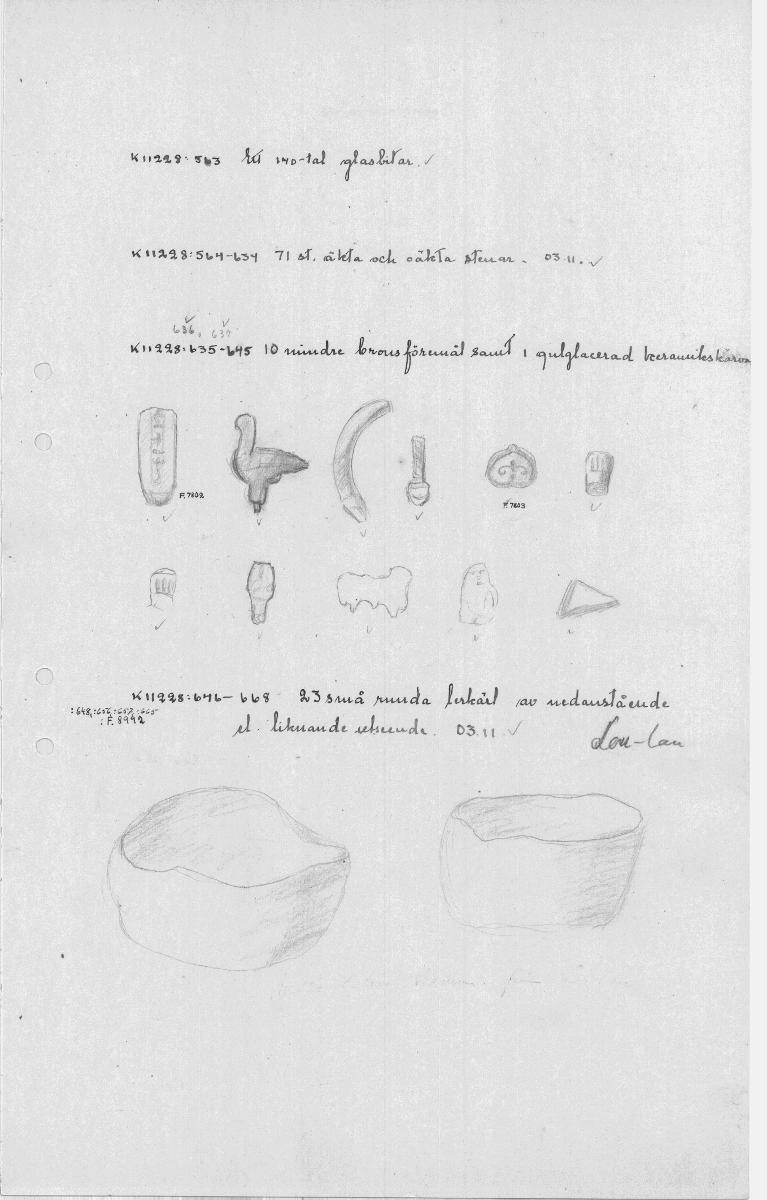 K11228:563 Ett 140-tal glasbitar. ✓
K11228:564-634 71 st. äkta och oäkta stenar. 03.11. ✓
636, 637
K11228:635-645 10 mindre bronsföremål samt 1 gulglacerad keramikskärva
F.7802
F.7803
K11228:646-668 23 små runda lerkärl av nedanstående
:648,:656,:657,:665
: F. 8992
el. liknande utseende. 03.11 ✓
Lou-lan